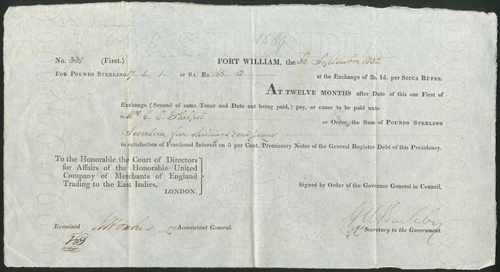 No. 321 (First.) FORT WILLIAM, the 30 September 1832
FOR POUNDS STERLING 17. 5. 1. OR SA. RS.
at the Exchange of 2s. 1d. per SICCA RUPEE.
AT TWELVE MONTHS after Date of this our First of
Exchange (Second of same Tenor and Date not being paid,) pay, or cause to be paid unto
or Order, the Sum of POUNDS STERLING
Seventeen five shillings one penny
in satisfaction of Fractional Interest on 5 per Cent. Promissory Notes of the General Register Debt of this Presidency.
To the Honorable the Court of Directors
for Affairs of the Honorable United
Company of Merchants of England
Trading to the East Indies,
LONDON.
Signed by Order of the Governor General in Council,
Examined
Accountant General.
Secretary to the Government.